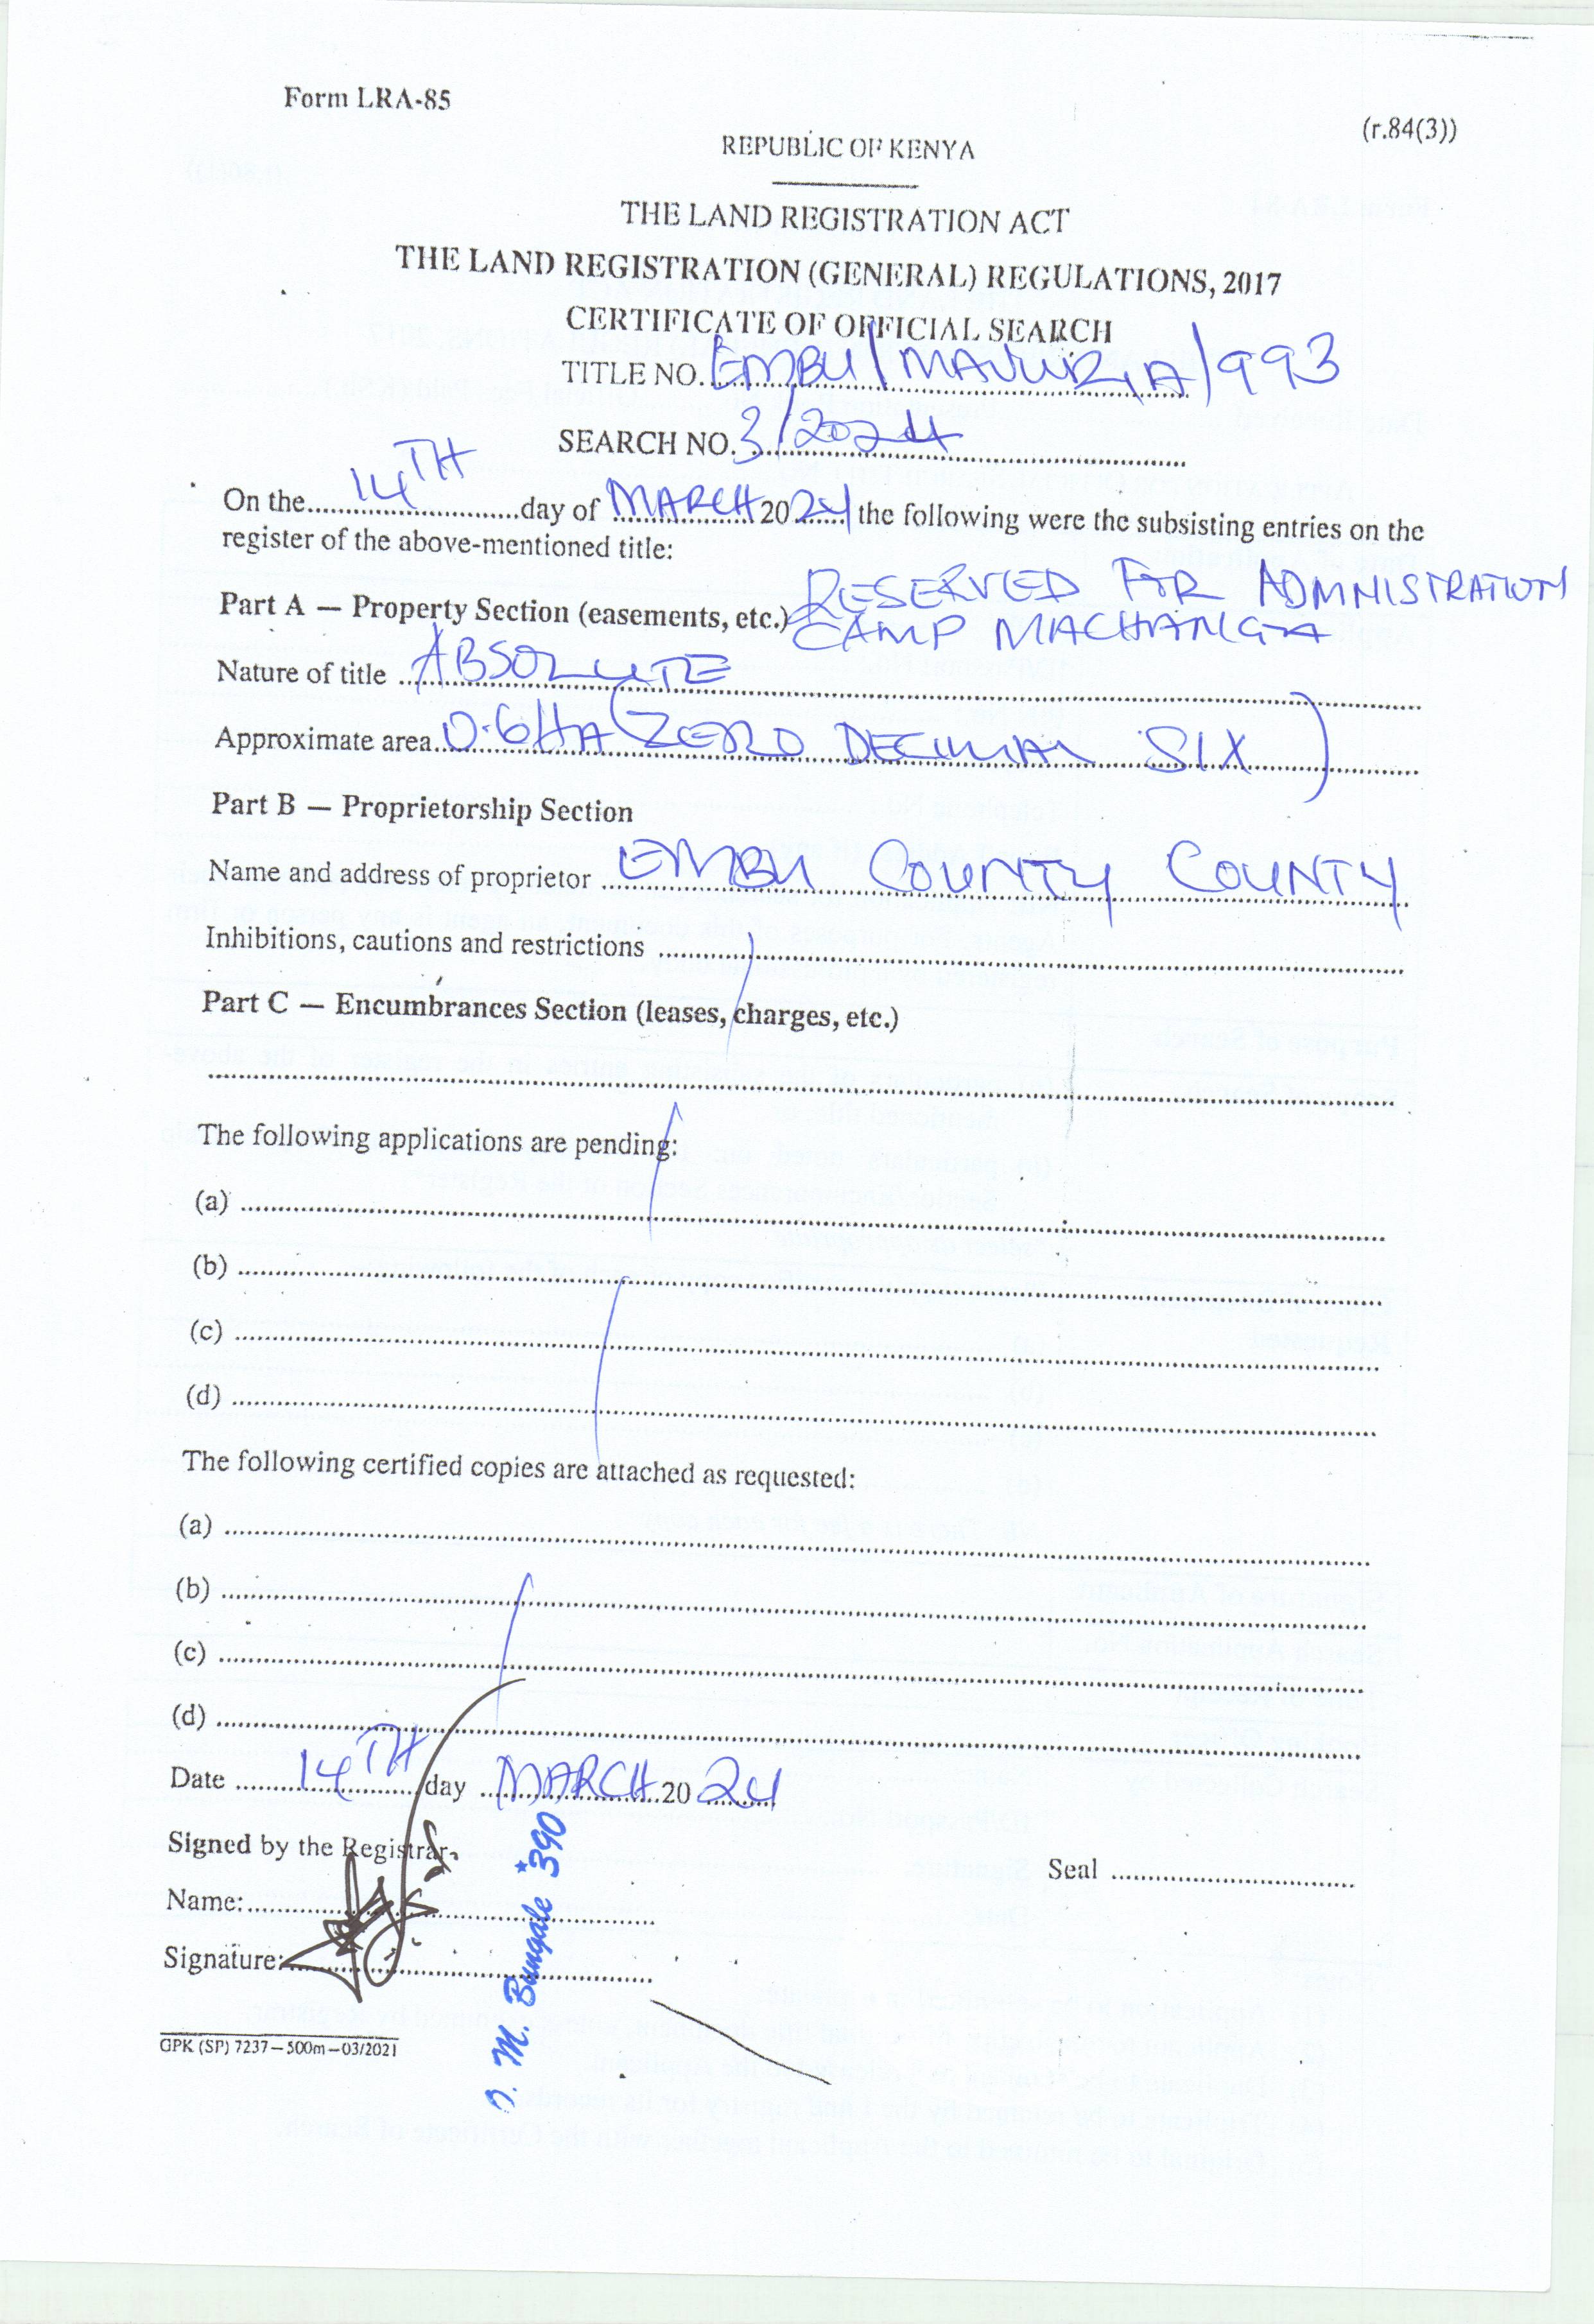 Form LRA-85
(r.84(3))
REPUBLIC OF KENYA
THE LAND REGISTRATION ACT
THE LAND REGISTRATION (GENERAL) REGULATIONS, 2017
CERTIFICATE OF OFFICIAL SEARCH
TITLE NO. EMBU/MAVURIA/993
SEARCH NO. 3/2024
On the 14TH day of MARCH 2024 the following were the subsisting entries on the
register of the above-mentioned title:
Part A — Property Section (easements, etc.) RESERVED FOR ADMNISTRATION
CAMP MACHANGA
Nature of title ABSOLUTE
Approximate area 0.6HA (ZERO DECIMAL SIX)
Part B — Proprietorship Section
Name and address of proprietor EMBU COUNTY COUNTY
Inhibitions, cautions and restrictions
Part C — Encumbrances Section (leases, charges, etc.)
The following applications are pending:
(a)
(b)
(c)
(d)
The following certified copies are attached as requested:
(a)
(b)
(c)
(d)
Date 14TH day MARCH 2024
Signed by the Registrar
Seal
Name:
Signature:
M. Bungale *390
GPK (SP) 7237—500m—03/2021